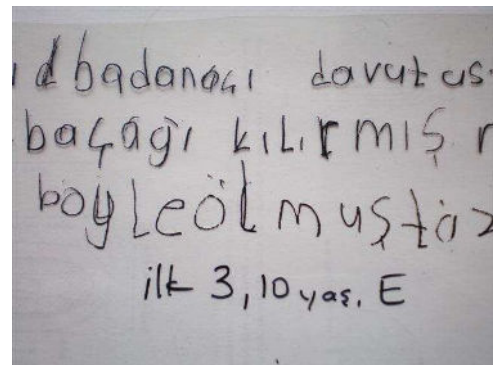 badanacı davut us
bacağı kılırmış
böyle ölmuştur
ilk 3, 10 yaş, E